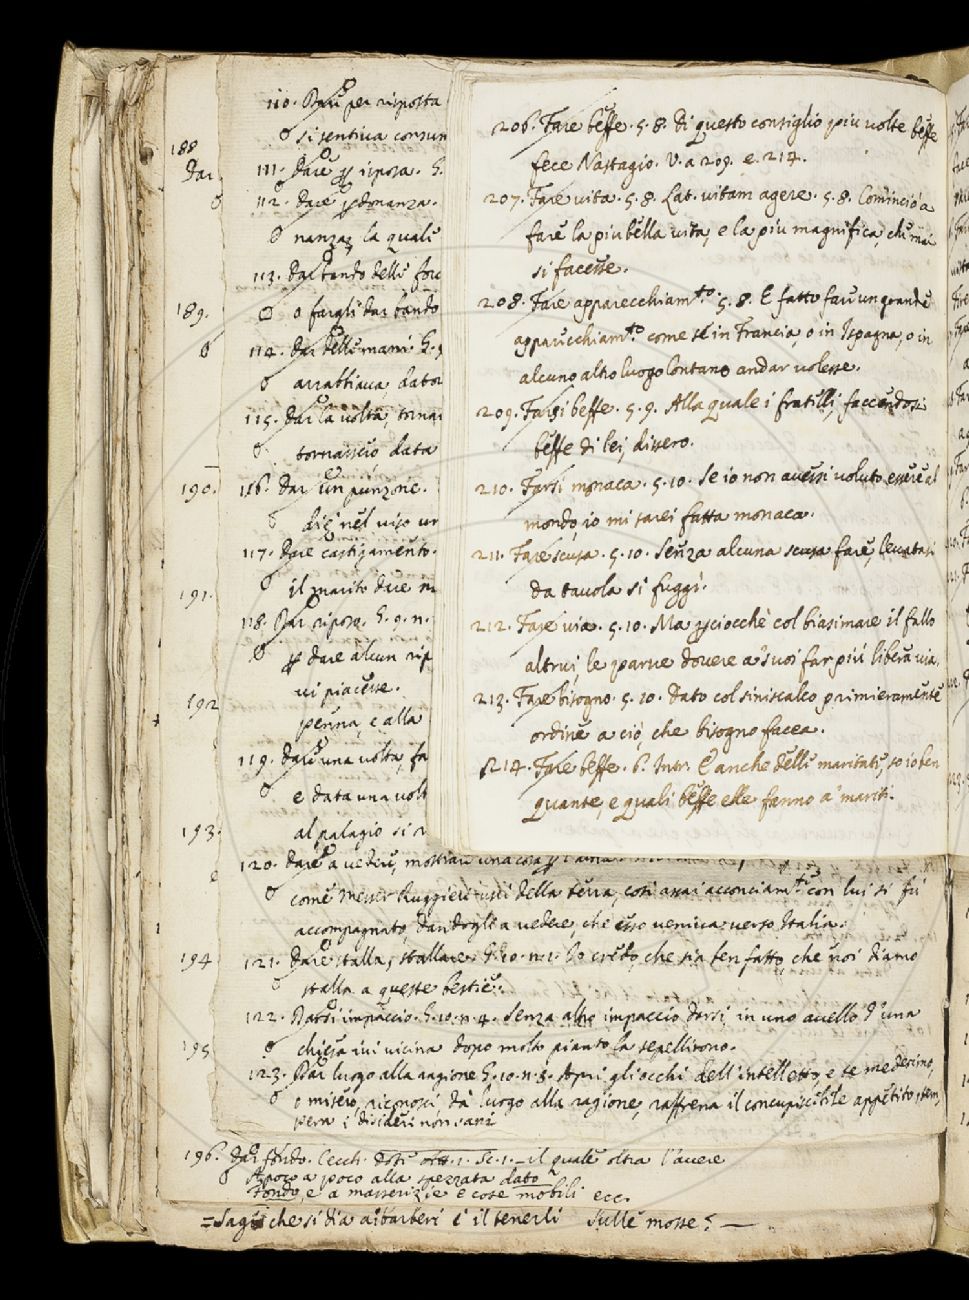 188
Dar
189.
190.
191.
192
193.
194
195
110. Dare per risposta
si sentiva consum
111. Dare p risposa. G.
112. dare pdonanza.
nanza, la quali
113. dar bando delle forc
o fargli dar bando
114. Dar delle mani. G.
arrabbiava, dator
115. Dar la volta, tornar
tornassero data
116. Dar un punzone.
diè nel viso un
117. Dare castigamento.
il marito dare
118. Dar riposo. G. 9. n.
p dare alcun rip
vi piacesse.
penna, e alla
119. Dare una volta, fa
e data una volt
al palagio si
120. dare a vedere, mostrare una cosa p l'altra
come messer Ruggieri usci della terra, così assai acconciam.te con lui si fu
accompagnato, dandogli a vedere, che esso veniva verso Italia.
121. Dare stalla, stallare. G. 10. n. 1. Io credo, che sia ben fatto, che noi diamo
stalla a queste bestie.
122. Darsi impaccio. G. 10. n. 4. Senza altro impaccio darsi in uno avello d'una
chiesa ivi vicina dopo molto pianto la sepellirono.
123. Dar luogo alla ragione G. 10. n. 8. Apri gli occhi dell'intelletto, e te medesimo,
o misero, riconosci, dà luogo alla ragione, raffrena il concupiscibile appetito, tem,
pera i disideri non sani
196. dar fondo. Cecch. Dote att. 1. Sc. 1. – il quale oltra l'avere
A poco a poco alla spezzata dato
fondo, e a masserizie e cose mobili ecc.
= Sagi che si dia a' barberi è il tenerli sulle mosse? —
206. Fare beffe. 5. 8. Di questo consiglio piu volte beffe
fece Nastagio. V. a 209. e. 214.
207. Fare vita. 5. 8. Lat. vitam agere. 5. 8. Cominciò a
fare la piu bella vita, e la piu magnifica, che mai
si facesse.
208. Fare apparecchiam.to 5. 8. E fatto fare un grande
apparecchiam.to come se in Francia, o in Ispagna, o in
alcuno altro luogo lontano andar volesse.
209. Farsi beffe. 5. 9. Alla quale i fratelli, faccendosi
beffe di lei, dissero.
210. Farsi monaca. 5. 10. Se io non avessi voluto essere al
mondo, io mi sarei fatta monaca.
211. Fare scusa. 5. 10. Senza alcuna scusa fare, levatasi
da tavola si fuggì.
212. Fare via. 5. 10. Ma pciocchè col biasimare il fallo
altrui, le parve dovere a' suoi far più libera via,
213. Fare bisogno. 5. 10. Dato col siniscalco primieramente
ordine a ciò, che bisogno facea.
214. Fare beffe. 6. Intr. E anche delle maritate, so io ben
quante, e quali beffe elle fanno a' mariti.